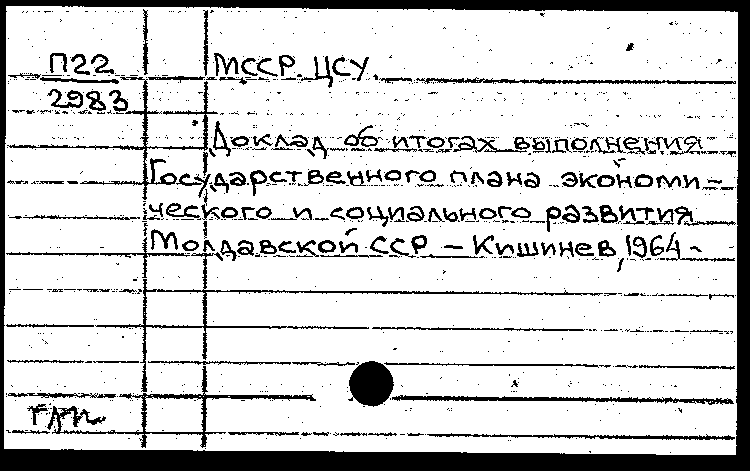 П22 МССР. ЦСУ.
2983
Доклад об итогах выполнения
Государственного плана экономи-
ческого и социального развития
Молдавской ССР. – Кишинев, 1964-